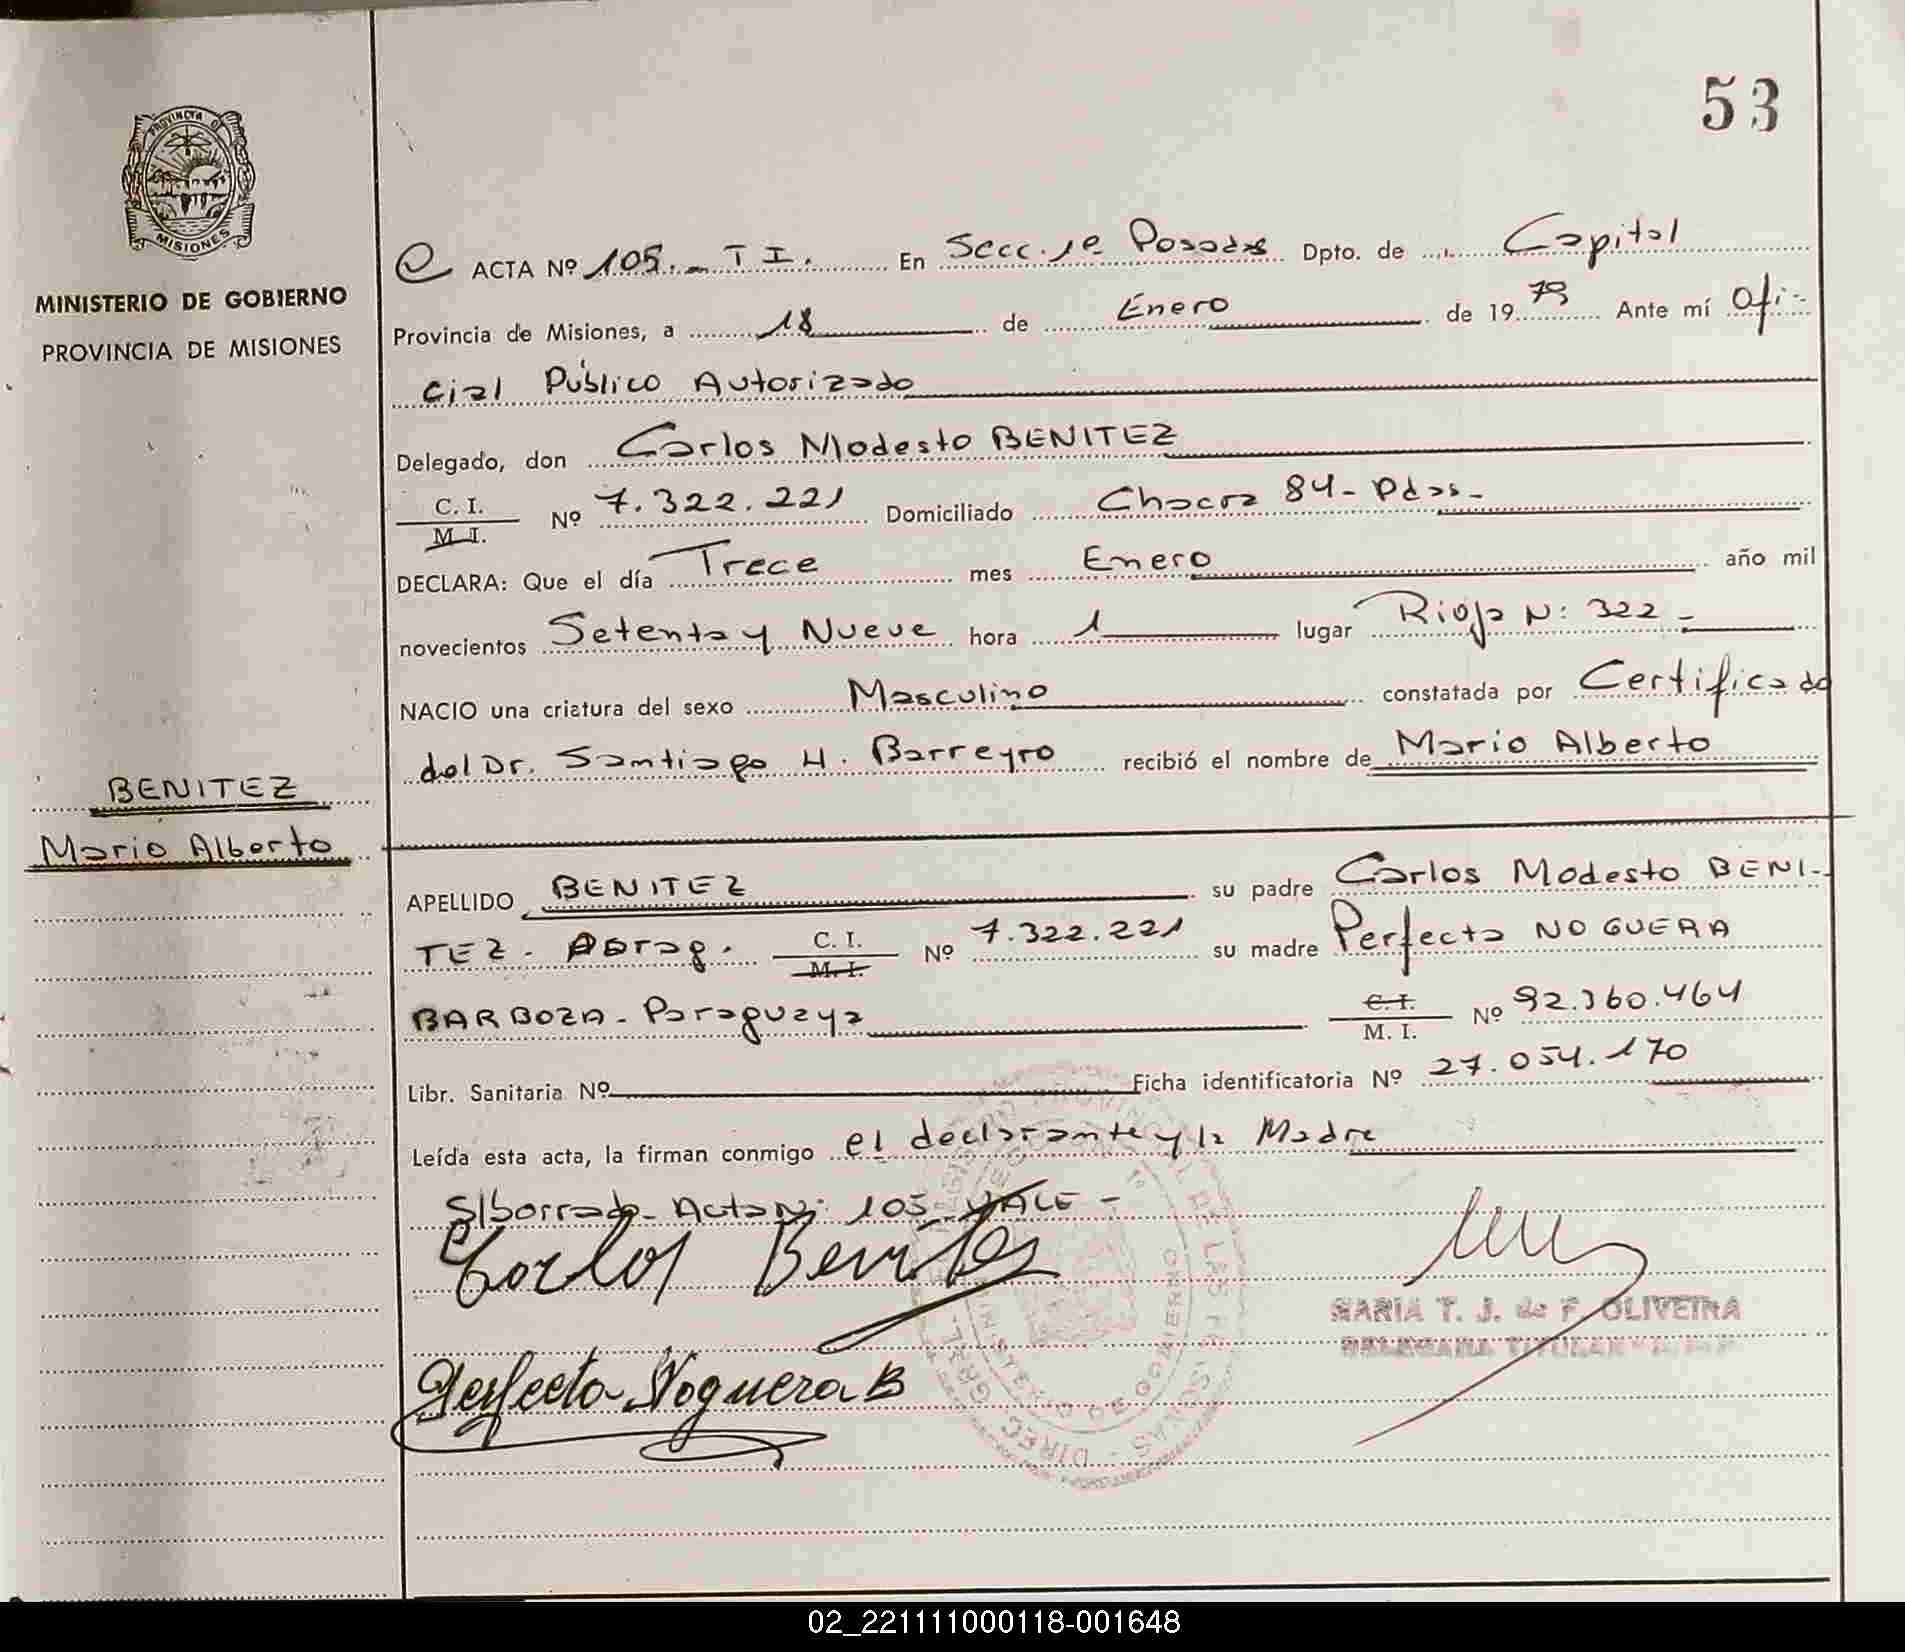 53
PROVINCIA DE
MISIONES
MINISTERIO DE GOBIERNO
PROVINCIA DE MISIONES
ACTA Nº 105.- T I. En Secc. 1ª Posadas Dpto. de Capital
Provincia de Misiones, a 18 de Enero de 1979 Ante mí Ofi-
cial Público Autorizado
Delegado, don Carlos Modesto BENITEZ
C. I. / M. I. Nº 7.322.221 Domiciliado Chacra 84- Pdas-
DECLARA: Que el día Trece mes Enero año mil
novecientos Setenta y Nueve hora 1 lugar Rioja N: 322 -
NACIO una criatura del sexo Masculino constatada por Certificado
del Dr. Santiago H. Barreyro recibió el nombre de Mario Alberto
BENITEZ
Mario Alberto
APELLIDO BENITEZ su padre Carlos Modesto BENI-
TEZ - Parag. C. I. / M. I. Nº 7.322.221 su madre Perfecta NOGUERA
BARBOZA - Paraguaya C. I. / M. I. Nº 92.360.464
Libr. Sanitaria Nº Ficha identificatoria Nº 27.054.170
Leída esta acta, la firman conmigo el declarante y la Madre
S/borrado- Acta N: 105 VALE -
Carlos Benites
MARIA T. J. de F. OLIVEIRA
DELEGADA TITULAR
Perfecta Noguera B
02_221111000118-001648